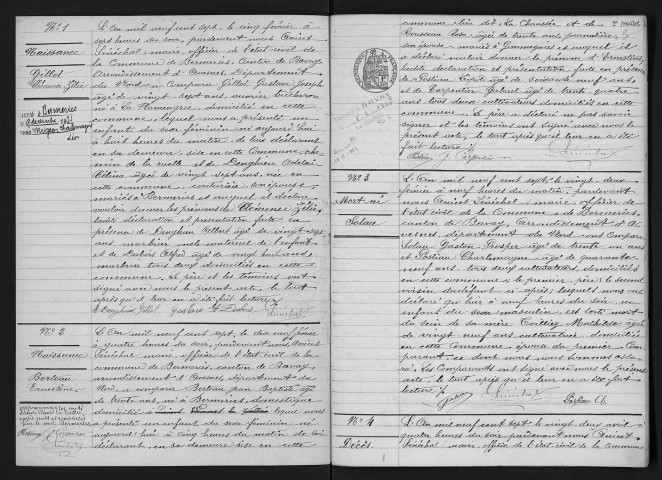 N° 1
Naissance
Gillot
Clémence Zélie
L'An mil neuf cent sept, le cinq février à
sept heures du soir, pardevant nous Ernest
Sénéchal, maire, officier de l'état civil de
la Commune de Bermeries, Canton de Bavay
Arrondissement d'Avesnes Département
du Nord a comparu Gillot Gustave Joseph
âgé de vingt sept ans, ouvrier
à La Flamengrie, domicilié en cette
commune, lequel nous a présenté un
enfant du sexe féminin né aujourd'hui
à huit heures du matin, de lui déclarant
en sa demeure, sise en cette Commune, che-
min de la ruelle et de Denghien Adélaï-
Céline âgée de vingt sept ans, née en
cette commune, couturière son épouse,
mariés à Bermeries et auquel il déclare
vouloir donner les prénoms de Clémence Zélie,
ladite déclaration et présentation faite en
présence de Denghien Albert âgé de vingt sept
ans, marbrier oncle maternel de l'enfant
et de Dubois Alfred âgé de vingt huit ans,
marbrier tous deux domiciliés en cette
commune. Le père et les témoins ont
signé avec nous le présent acte, le tout
après qu'il leur en a été fait lecture
A Denghien Gillot Gustave A Dubois
N° 2
Naissance
Berteau
Ernestine
L'An mil neuf cent sept, le dix neuf février
à quatre heures du soir, pardevant nous Ernest
Sénéchal maire, officier de l'état civil de la
commune de Bermeries, canton de Bavay,
arrondissement d'Avesnes, département du
Nord, a comparu Berteau Jean Baptiste âgé
de trente ans, né à Bermeries, domestique
domicilié à lequel nous
a présenté un enfant du sexe féminin né
aujourd'hui à cinq heures du matin de lui
déclarant, en sa demeure sise en cette
commune lieu dit: La Chaussée et de
Rousseau Rosa âgée de trente ans, journalière
son épouse, mariés à Gommegnies et auquel il
a déclaré vouloir donner le prénom d'Ernestine,
ladite déclaration et présentation faite en présence
de
et de Carpentier Gabriel âgé de trente quatre
ans tous deux cultivateurs domiciliés en cette
commune. Le père a déclaré ne pas savoir
signer et les témoins ont signé avec nous le
présent acte, le tout après qu'il leur en a été
fait lecture
N° 3
Mort-né
Soleau
L'An mil neuf cent sept, le vingt deux
février à neuf heures du matin, pardevant
nous Ernest Sénéchal, maire, officier de
l'état civil de la Commune de Bermeries,
canton de Bavay, Arrondissement d'A-
vesnes, département du Nord ont comparu
Soleau Gaston Prosper âgé de trente un ans
et Postiau Charlemagne âgé de quarante
neuf ans, tous deux cultivateurs, domiciliés
en cette commune, le premier, père, le second
voisin du défunt ci après; lesquels nous ont
déclaré que hier à neuf heures du soir un
enfant du sexe masculin, est sorti mort
du sein de sa mère Mathilde âgée
de vingt neuf ans cultivatrice, domiciliée
en cette Commune, épouse du premier Com-
parant, ce dont nous nous sommes assu-
ré. Les Comparants ont signé avec nous le présent
acte, le tout après qu'il leur en a été fait
lecture
Postiau Ch.
N° 4
Décès
L'An mil neuf cent sept, le vingt deux avril à
quatre heures du soir, pardevant nous Ernest
Sénéchal maire, officier de l'état civil de la commune